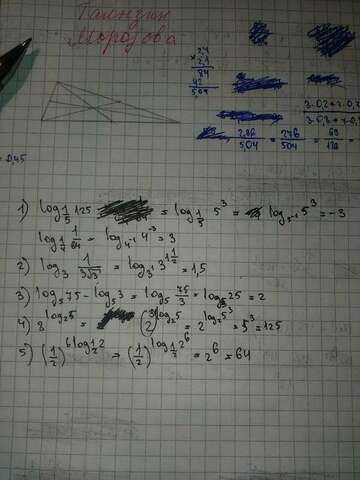 Танзин
Морозова
2,4
× 2,1
84
42
504
3·0,2+
3·0,8+
2,76/5,04 = 276/504 = 69/126 =
= 0,45
1) log_{1/5} 125 = log_{1/5} 5^3 = log_{5^{-1}} 5^3 = -3
log_{1/4} 1/64 = log_{4^{-1}} 4^{-3} = 3
2) log_3 1/(3√3) = log_{3^1} 3^{1 1/2} = 1,5
3) log_5 75 - log_5 3 = log_5 75/3 = log_5 25 = 2
4) 8^{log_2 5} = (2)^{3log_2 5} = 2^{log_2 5^3} = 5^3 = 125
5) (1/2)^{6log_{1/2} 2} = (1/2)^{log_{1/2} 2^6} = 2^6 = 64